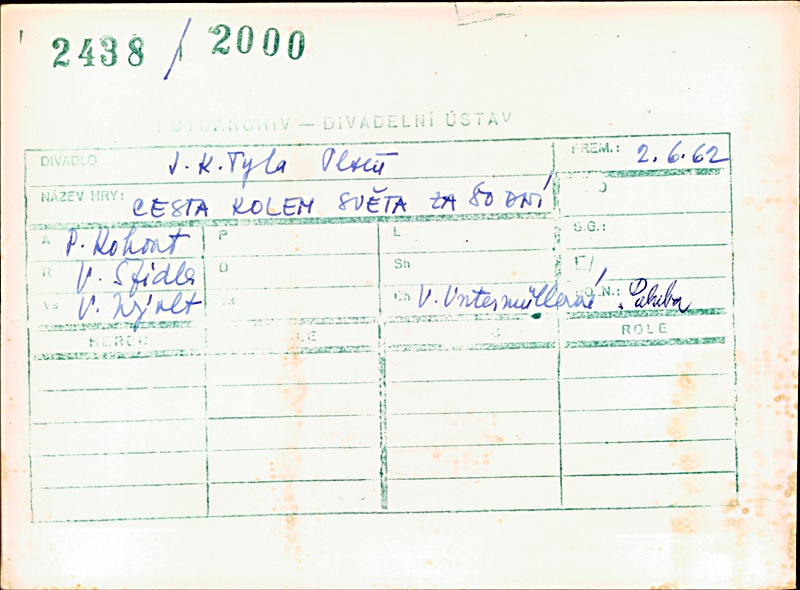 2438 / 2000
FOTOARCHIV – DIVADELNÍ ÚSTAV
DIVADLO J. K. Tyla Plzeň PREM.: 2.6.62
NÁZEV HRY: CESTA KOLEM SVĚTA ZA 80 DNÍ
A P. Kohout P L S.G.:
R V. Špidla D Sh
Vs V. Ch V. Untermüllerová
HEREC ROLE